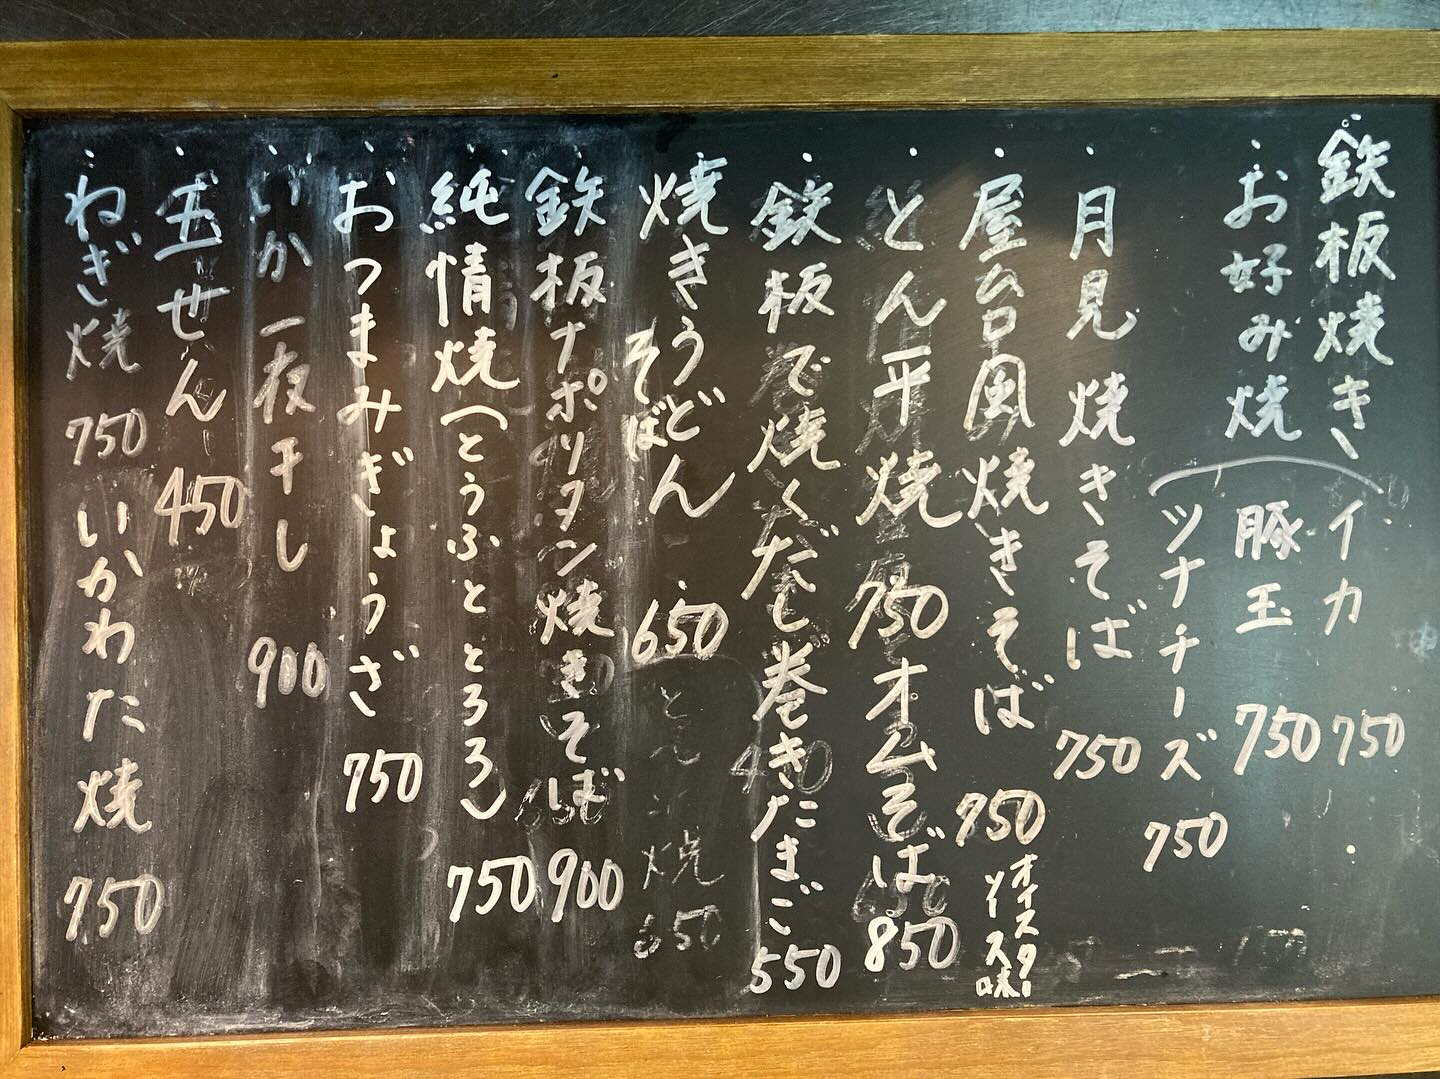 鉄板焼き、イカ 750
お好み焼 豚玉 750
ツナチーズ 750
月見焼きそば 750
屋台風焼きそば 750 オイスターソース味
とん平焼 750 オムそば 850
鉄板で焼くだし巻きたまご 550
焼きうどん 650
そば
鉄板ナポリタン焼きそば 900
純情焼(とうふととろろ) 750
おつまみぎょうざ 750
いか一夜干し 900
玉せん 450
ねぎ焼 750 いかわた焼 750